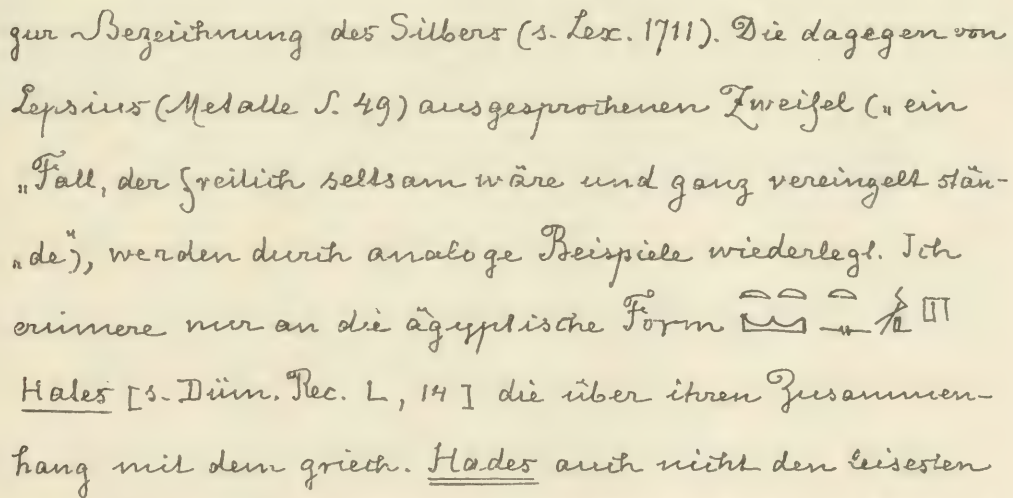 zur Bezeichnung des Silbers (s. Lex. 1711). Die dagegen von
Lepsius (Metalle S. 49) ausgesprochenen Zweifel („ein
„Fall, der freilich seltsam wäre und ganz vereinzelt stän-
„de”), werden durch analoge Beispiele wiederlegt. Ich
erinnere nur an die ägyptische Form
Hates [s. Düm. Rec. L, 14] die über ihren Zusammen-
hang mit dem griech. Hades auch nicht den leisesten